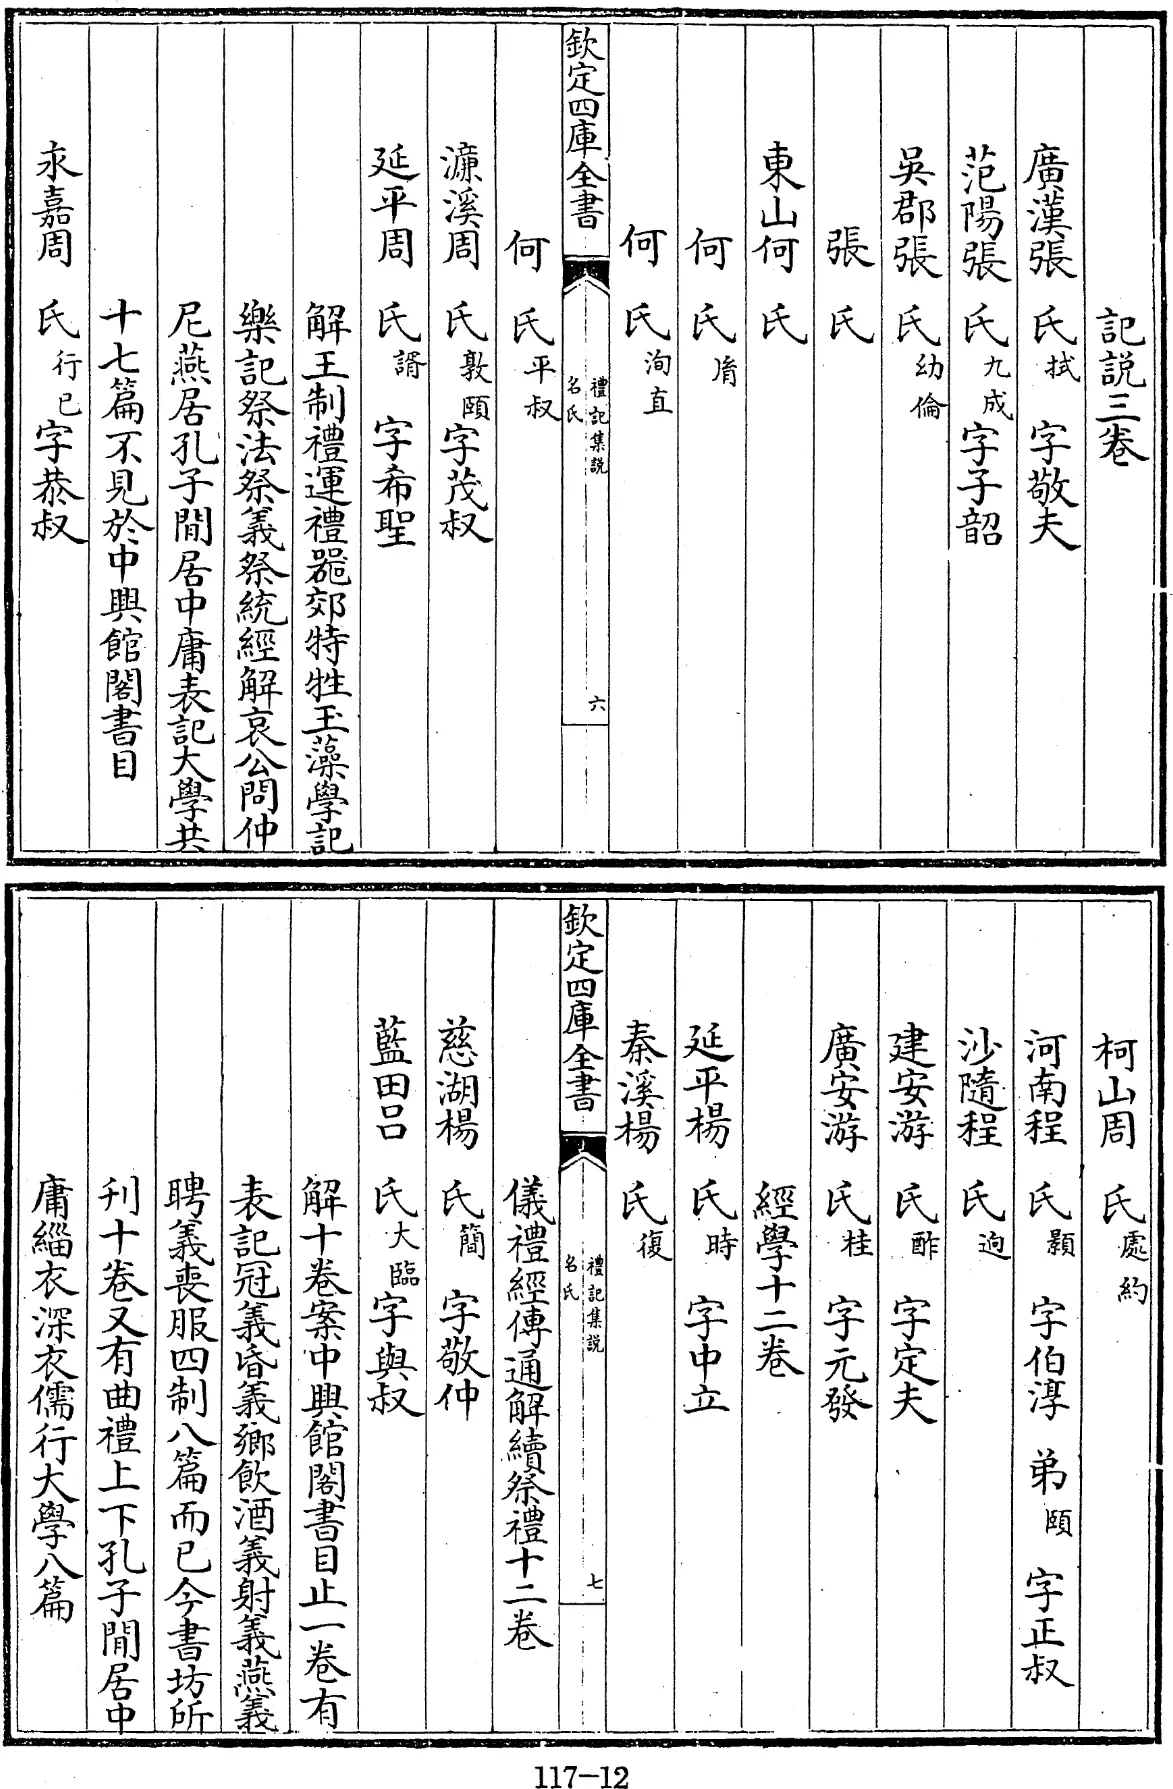 記説三卷
廣漢張氏栻字敬夫
范陽張氏九成字子韶
吳郡張氏幼倫
張氏
東山何氏
何氏㣧
何氏洵直
欽定四庫全書
禮記集説
名氏
六
何氏平叔
濂溪周氏敦頤字茂叔
延平周氏諝字希聖
解王制禮運禮器郊特牲玉藻學記
樂記祭法祭義祭統經解哀公問仲
尼燕居孔子閒居中庸表記大學共
十七篇不見於中興館閣書目
永嘉周氏行已字恭叔
柯山周氏處約
河南程氏顥字伯淳弟頤字正叔
沙隨程氏迥
建安游氏酢字定夫
廣安游氏桂字元發
經學十二卷
延平楊氏時字中立
秦溪楊氏復
欽定四庫全書
禮記集説
名氏
七
儀禮經傳通解續祭禮十二卷
慈湖楊氏簡字敬仲
藍田吕氏大臨字與叔
解十卷案中興館閣書目止一卷有
表記冠義昏義鄉飲酒義射義燕義
聘義喪服四制八篇而已今書坊所
刊十卷又有曲禮上下孔子閒居中
庸緇衣深衣儒行大學八篇
117-12